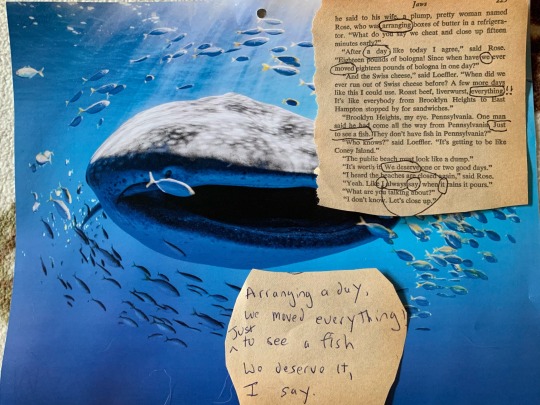 Jaws 225
he said to his wife, a plump, pretty woman named
Rose, who was arranging boxes of butter in a refrigera-
tor. "What do you say we cheat and close up fifteen
minutes early?"
"After a day like today I agree," said Rose.
"Eighteen pounds of bologna! Since when have we ever
moved eighteen pounds of bologna in one day?"
"And the Swiss cheese," said Loeffler. "When did we
ever run out of Swiss cheese before? A few more days
like this I could use. Roast beef, liverwurst, everything!!
It's like everybody from Brooklyn Heights to East
Hampton stopped by for sandwiches."
"Brooklyn Heights, my eye. Pennsylvania. One man
said he had come all the way from Pennsylvania. Just
to see a fish. They don't have fish in Pennsylvania?"
"Who knows?" said Loeffler. "It's getting to be like
Coney Island."
"The public beach must look like a dump."
"It's worth it. We deserve one or two good days."
"I heard the beaches are closed again," said Rose.
"Yeah. Like I always say, when it rains it pours."
"What are you talking about?"
"I don't know. Let's close up."
Arranging a day,
we moved everything!
Just
^ to see a fish
We deserve it,
I say.